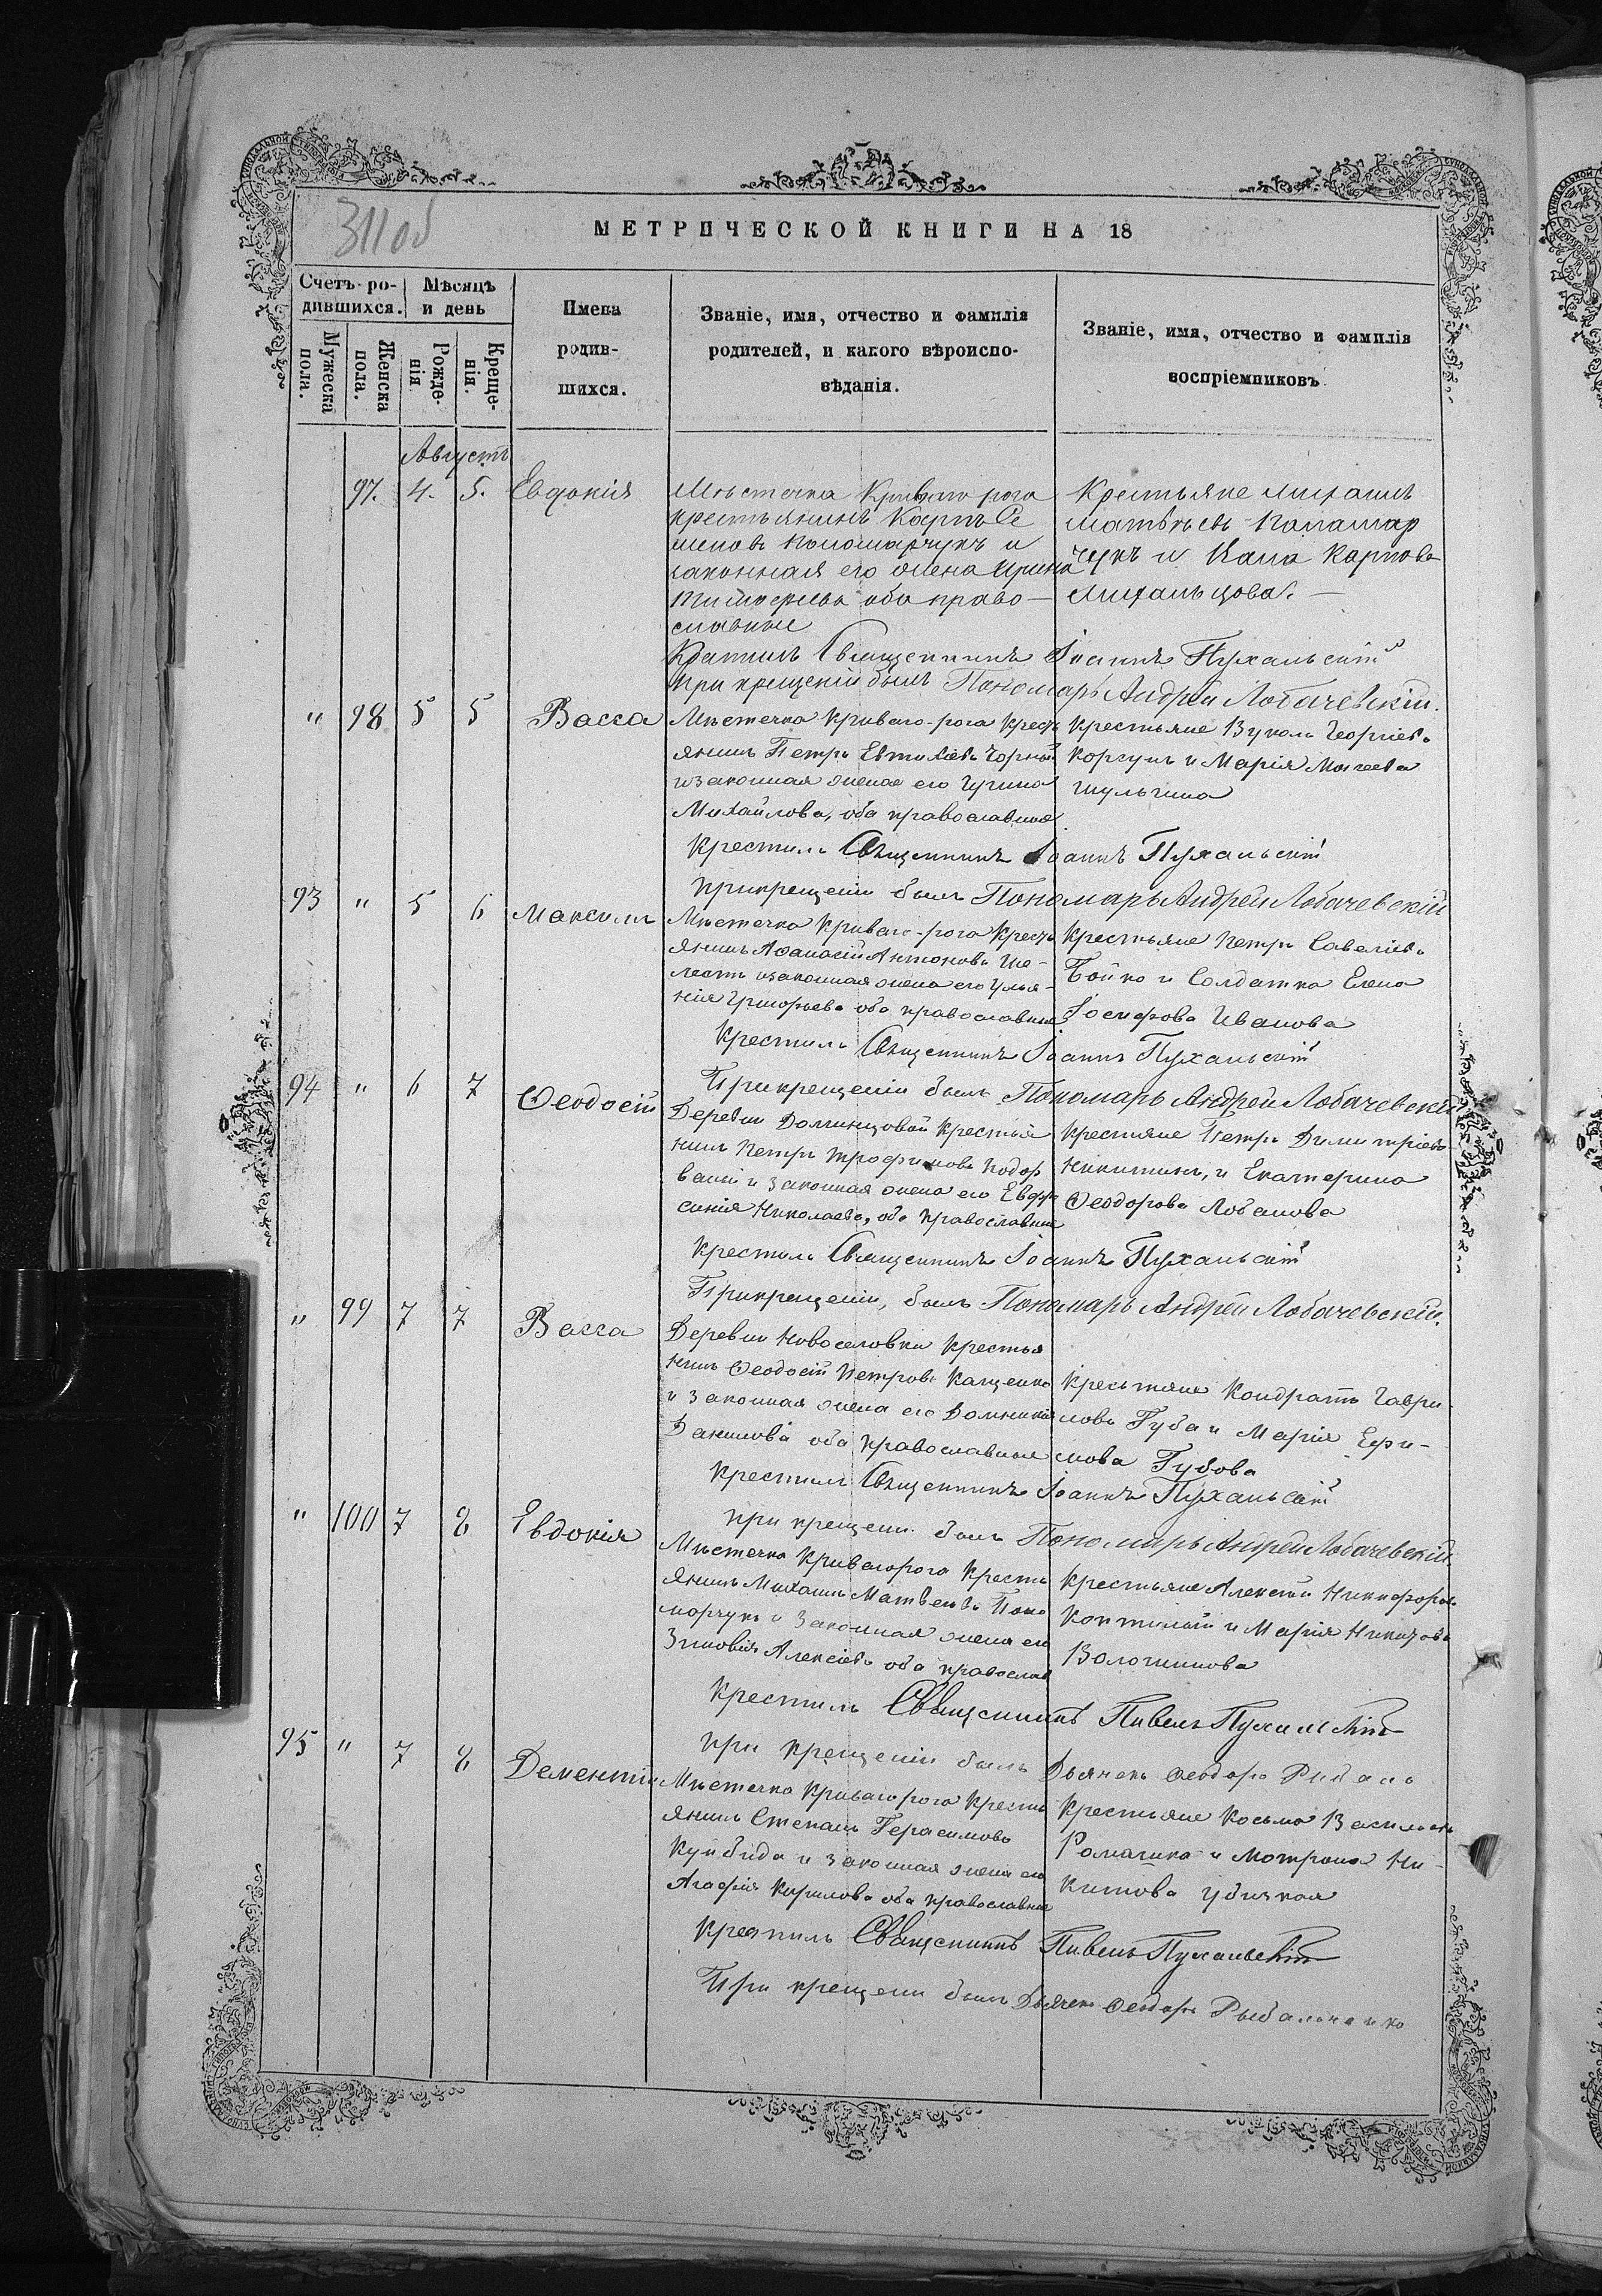 311 об
МЕТРИЧЕСКОЙ КНИГИ НА 18
Счетъ родившихся.
Мѣсяцъ и день
Имена родившихся.
Званіе, имя, отчество и фамилія родителей, и какого вѣроисповѣданія.
Званіе, имя, отчество и фамилія воспріемниковъ
Мужеска пола.
Женска пола.
Рожденія
Крещенія.
Августъ
97. 4. 5. Евдокія
Мѣстечка Криваго рога
крестьянинъ Карпъ Се
меновъ Пономарчукъ и
законная его жена Ирина
Тимофеева оба право-
славные
Крестьяне Михаилъ
Матвѣевъ Панамар
чукъ и Карпова
Михальцова.
Крестилъ Священникъ Іоаннъ Пухальскій
При крещеніи былъ Пономарь Андрей Лобачевскій.
" 98 5 5 Васса
Мѣстечка Криваго-рога Кресть
янинъ Петръ Евтихіевъ Чорный
и законная жена его
Михайлова, оба православные
Крестьяне Вуколъ Георгіевъ
Коргунъ и Марія Моисеева
Шульгина
Крестилъ Священникъ Іоаннъ Пухальскій
При крещеніи былъ Пономарь Андрей Лобачевскій
93 " 5 6 Максимъ
Мѣстечка Криваго-рога Кресть
янинъ Афанасій Антоновъ Ше-
лестъ и законная жена его Улья-
нія Григорьева оба православные
Крестьяне Петръ Савеліевъ
Бойко и Солдатка Елена
Іосифова Иванова
Крестилъ Священникъ Іоаннъ Пухальскій
При крещеніи былъ Пономарь Андрей Лобачевскій
94 " 6 7 Ѳеодосій
Деревни Долинцовой Крестья
нинъ Петръ Трофимовъ Подор
ваній и законная жена его Евфро
синія Николаева, оба православные
Крестьяне Петръ Димитріевъ
Никитинъ, и Екатерина
Ѳеодорова Лобанова
Крестилъ Священникъ Іоаннъ Пухальскій
При крещеніи, былъ Пономарь Андрей Лобачевскій.
" 99 7 7 Васса
Деревни Новоселовки Крестья
нинъ Ѳеодосій Петровъ Кащенко
и законная жена его Домникія
Данилова оба православные
Крестьяне Кондратъ Гаври-
ловъ Губа и Марія Ефи-
мова Губова
Крестилъ Священникъ Іоаннъ Пухальскій
При крещеніи былъ Пономарь Андрей Лобачевскій
" 100 7 8 Евдокія
Мѣстечка Криваго рога Кресть
янинъ Михаилъ Матвѣевъ Поно
марчукъ и законная жена его
Зиновія Алексіева оба православ
Крестьяне Алексѣй Никифоровъ
Коптилый и Марія Никитова
Волошинова
Крестилъ Священникъ Павелъ Пухальскій
При крещеніи былъ Дьячекъ Ѳеодоръ
95 " 7 8 Дементій
Мѣстечка Криваго рога Кресть
янинъ Стефанъ Герасимовъ
Куйбида и законная жена его
Агафія Кирилова оба православные
Крестьяне Косьма Васильевъ
и Мотрона Ни-
китова Убизкая
Крестилъ Священникъ Павелъ Пухальскій
При крещеніи былъ Дьячекъ Ѳеодоръ Рыбальченко